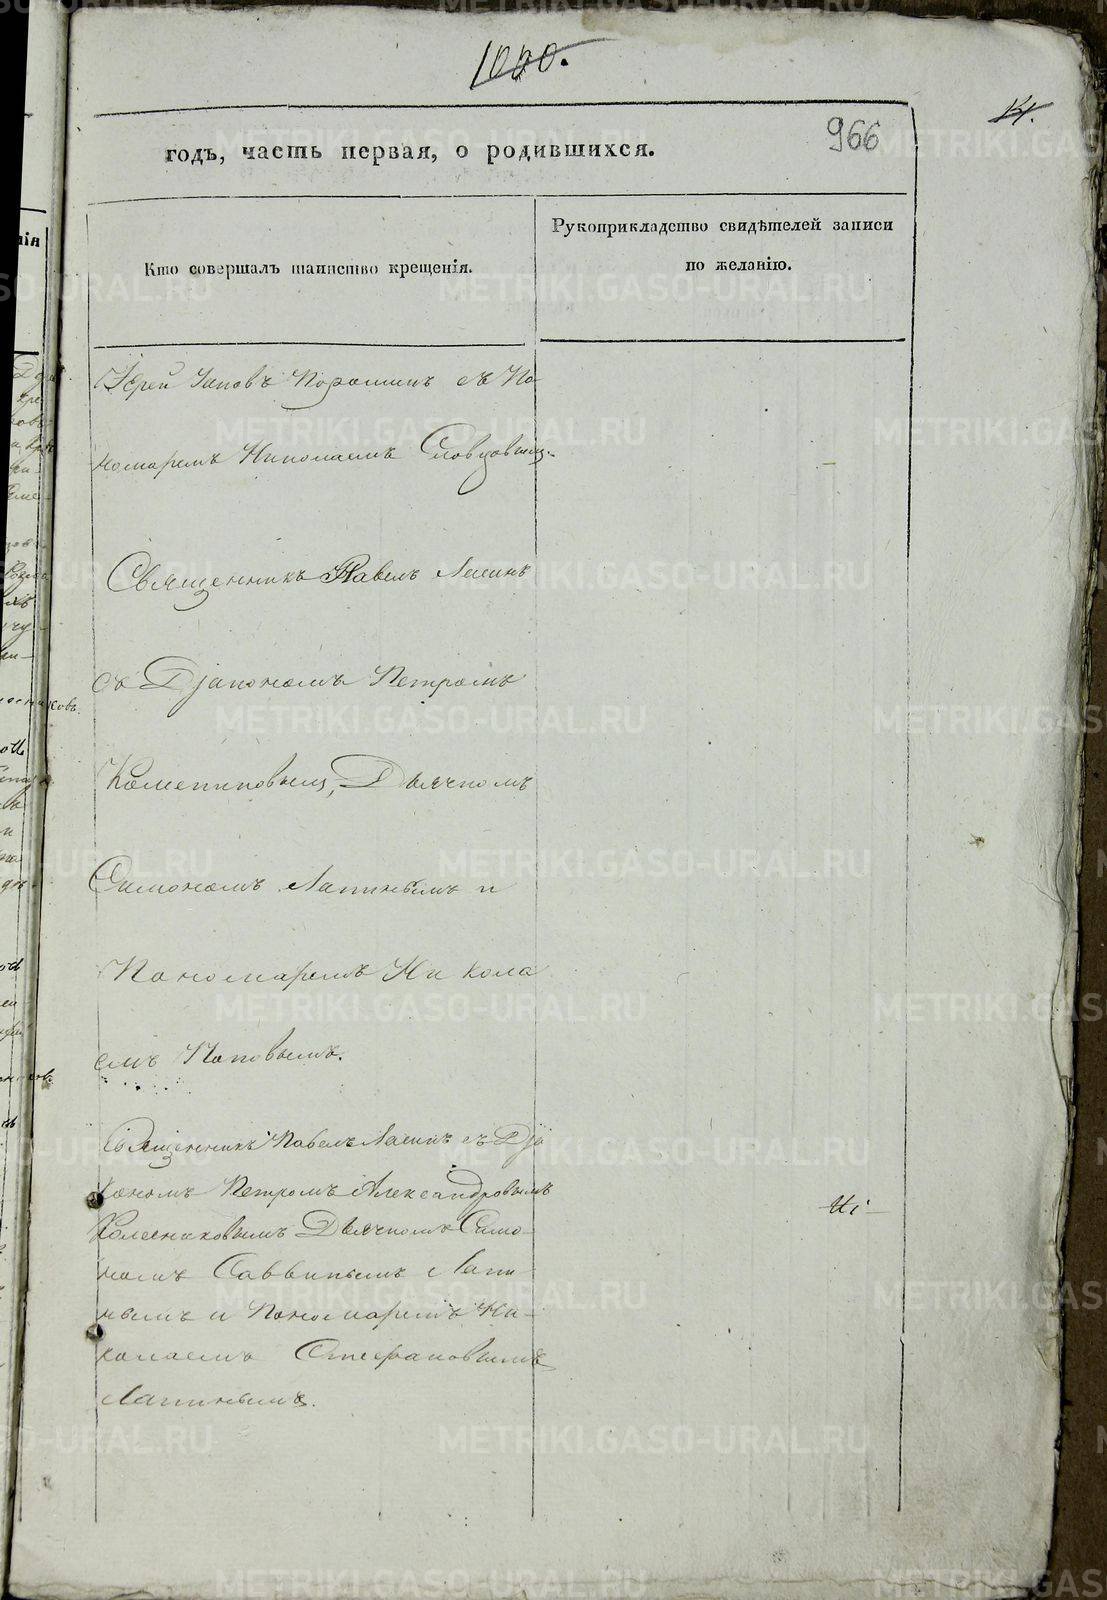 1000.
14.
966
годъ, часть первая, о родившихся.
Кто совершалъ таинство крещенія.
Рукоприкладство свидѣтелей записи
по желанію.
Іерей Іаковъ Порошинъ съ По-
номаремъ Николаемъ Словцовымъ.
Священникъ Павелъ Лясинъ
съ Діакономъ Петромъ
Дьячкомъ
Симономъ Лапинымъ и
Пономаремъ Никола
емъ Поповымъ.
Священникъ Павелъ Лясинъ съ Діа
кономъ Петромъ Александровымъ
Колесниковымъ Дьячкомъ Симо-
номъ Саввинымъ Лапи
нымъ и Пономаремъ Ни-
колаемъ Стефановымъ
Лапинымъ.
METRIKI.GASO-URAL.RU